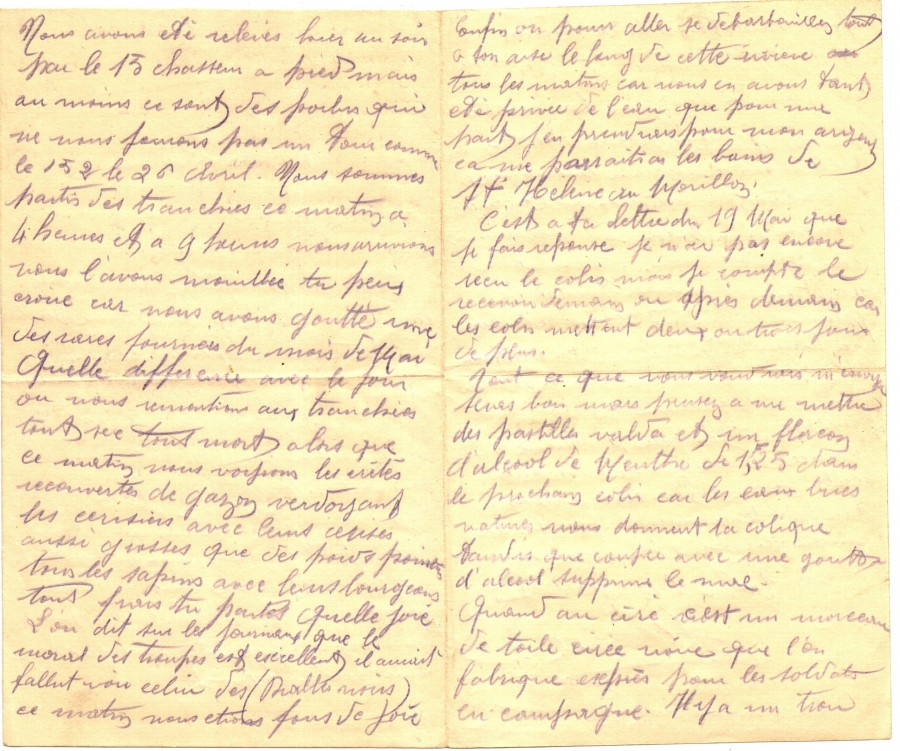 Nous avons eté relevés hier au soir
par le 15 chasseur a pied mais
au moins ce sont des poilus qui
ne nous feurons pas un tour comme
le 152 le 26 Avril. Nous sommes
partis des tranchées ce matin a
4 heures et a 9 heures nous arrivions
nous l'avons mouillée tu peux
croire car nous avons goutté une
des rares journées du mois de Mai
Quelle difference avec le jour
ou nous remontions aux tranchées
tout sec tout mort alors que
ce matin nous voyions les crêtes
recouvertes de gazon verdoyant
les cerisiers avec leurs cerises
aussi grosses que des poids pointus
tous les sapins avec leurs bourgeons
tout frais tu parles Quelle joie
L'on dit sur les journaux que le
moral des troupes est excellent, il aurait
fallut voir celui des (Diables nous)
ce matin nous etions fous de joie
Enfin on pourra aller se debarbouiller tout
a son aise le long de cette riviere
tous les matins car nous en avons tant
eté privée de l'eau que pour une
part j'en prendrais pour mon argent
ca me parraitra les bains de
St Helene au Morillon.
C'est a ta lettre du 19 Mai que
je fais reponse je n'ai pas encore
recu le colis mais je compte le
recevoir demain ou après demain car
les colis mettent deux ou trois jours
de plus.
Tout ce que vous voudrais m'envoye
seras bon mais pensez a me mettre
des pastilles valda et un flacon
d'alcool de Menthe de 1,25 dans
le prochain colis car les eaux bues
natures nous donnent la colique
tandis que coupée avec une goutte
d'alcool supprime le mal.
Quand au ciré c'est un morceau
de toile cirée noire que l'on
fabrique exprès pour les soldats
en campagne. Il y a un trou